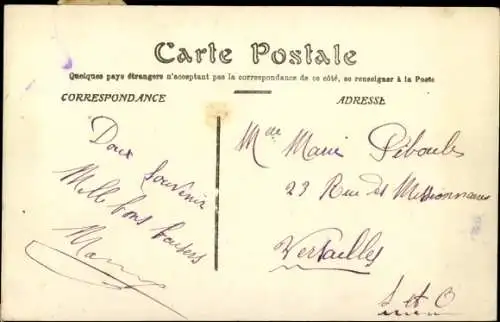 Carte Postale
Quelques pays étrangers n'acceptant pas la correspondance de ce côté, se renseigner à la Poste
CORRESPONDANCE
ADRESSE
Doux Souvenir
Mille bons baisers
Mlle Marie Piboule
23 Rue des Missionnaires
Versailles
S et O